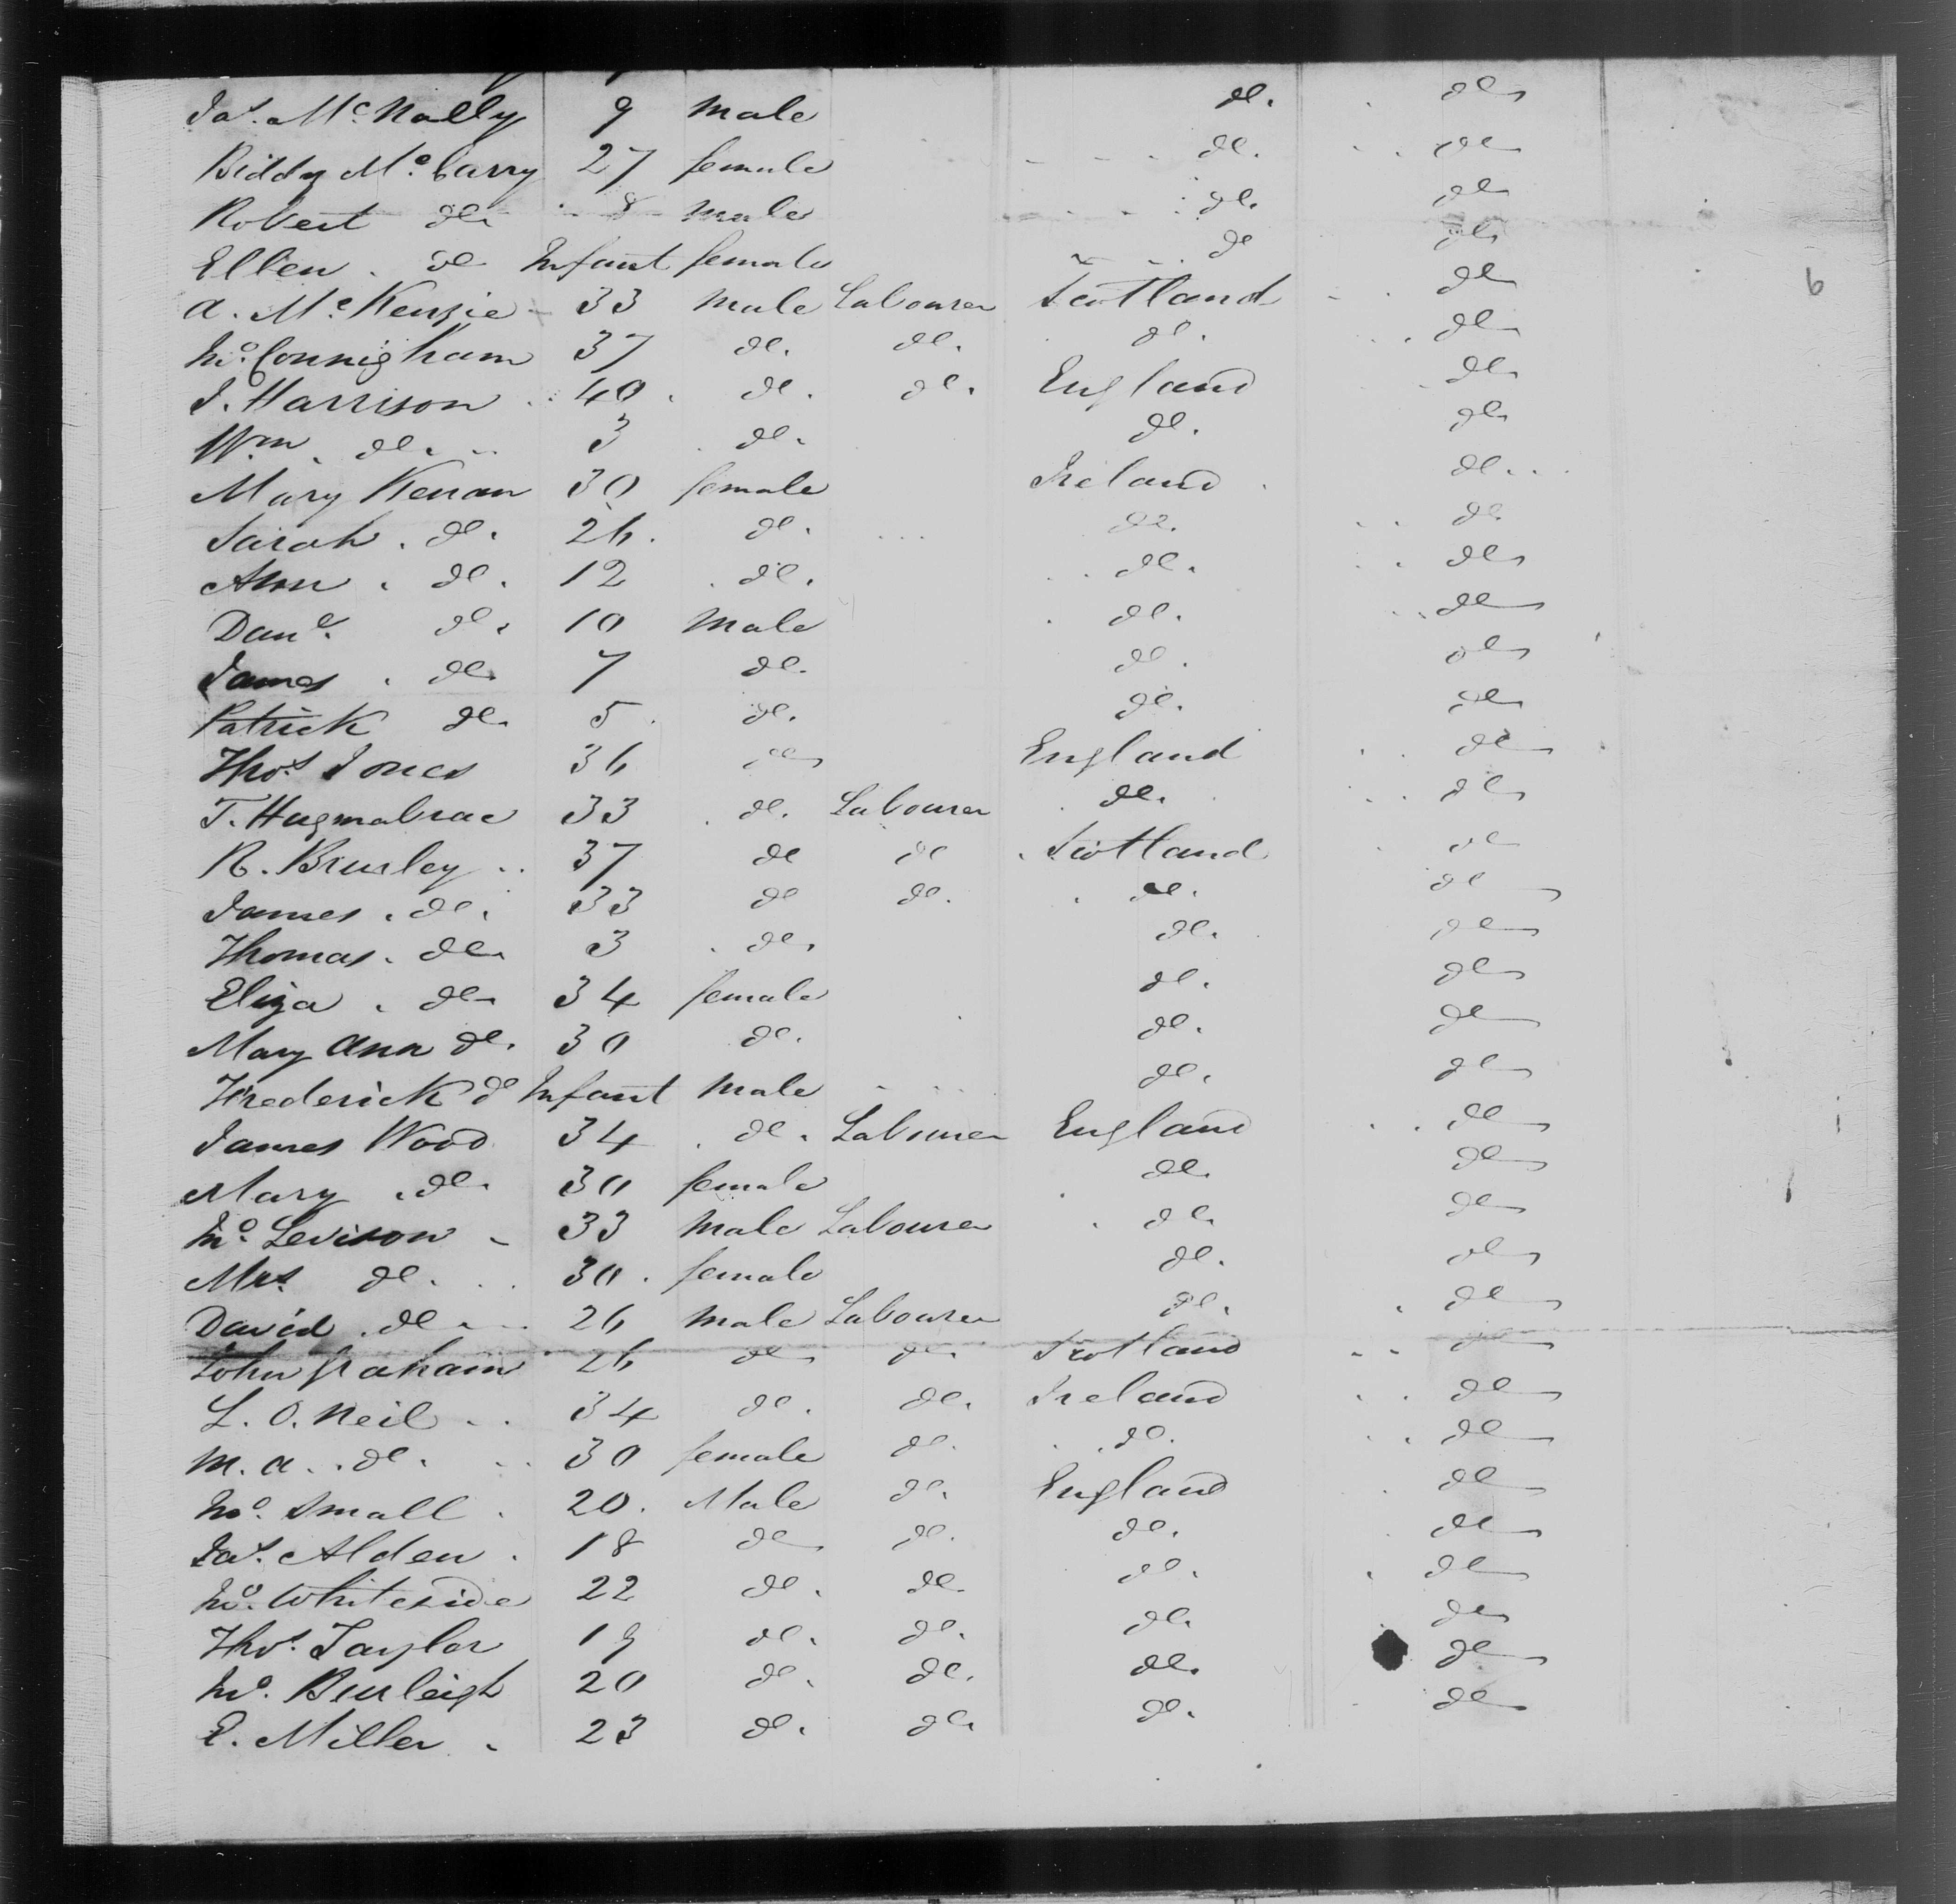 Jas. McNally 9 male do. do
Biddy McCarry 27 female do. do
Robert do 8 male do. do
Ellen do Infant female do do
A. McKenzie 33 male Labourer Scotland do
Jno. Connigham 37 do. do. do. do
J. Harrison 40 do. do. England do
Wm. do. 3 do. do. do
Mary Kenan 30 female Ireland do
Sarah do. 26 do. do. do
Ann do. 12 do. do. do
Danl. do. 10 male do. do
James do 7 do. do. do
Patrick do 5 do. do. do
Thos. Jones 36 do England do
T. 33 do. Labourer do. do
R. Brusley 37 do do Scotland do
James do. 33 do do. do. do
Thomas do 3 do. do. do
Eliza do 34 female do. do
Mary Ann do. 30 do. do. do
Frederick do Infant male do. do
James Wood 34 do. Labourer England do
Mary do 30 female do. do
Jno. Levison 33 male Labourer do do
Mrs. do. 30 female do. do
David do 26 male Labourer do. do
John Graham 26 do do Scotland do
L. O. Neil 34 do. do. Ireland do
M. A. do. 30 female do. do. do
Jno. Small 20 Male do. England do
Jas. Alden 18 do do. do. do
Jno. Whiteside 22 do. do. do. do
Thos. Taylor 19 do. do. do. do
Jno. Burleigh 20 do. do. do. do
E. Miller 23 do. do. do. do
6